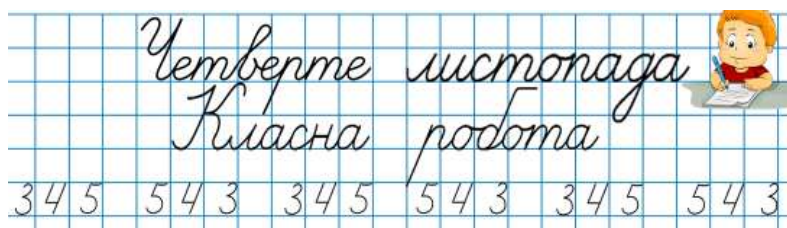 Четверте листопада
Класна робота
3 4 5 5 4 3 3 4 5 5 4 3 3 4 5 5 4 3